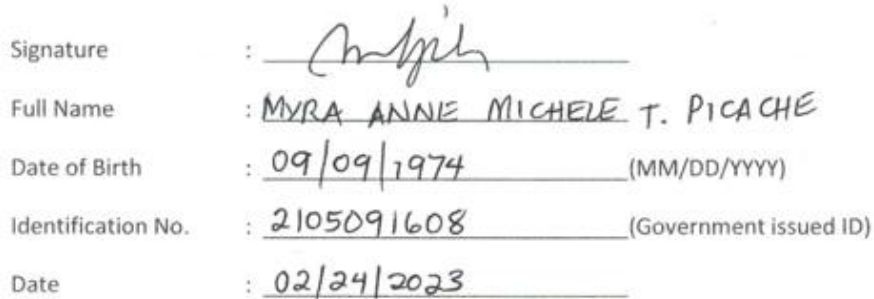 Signature :
Full Name : MYRA ANNE MICHELE T. PICACHE
Date of Birth : 09/09/1974 (MM/DD/YYYY)
Identification No. : 2105091608 (Government issued ID)
Date : 02/24/2023